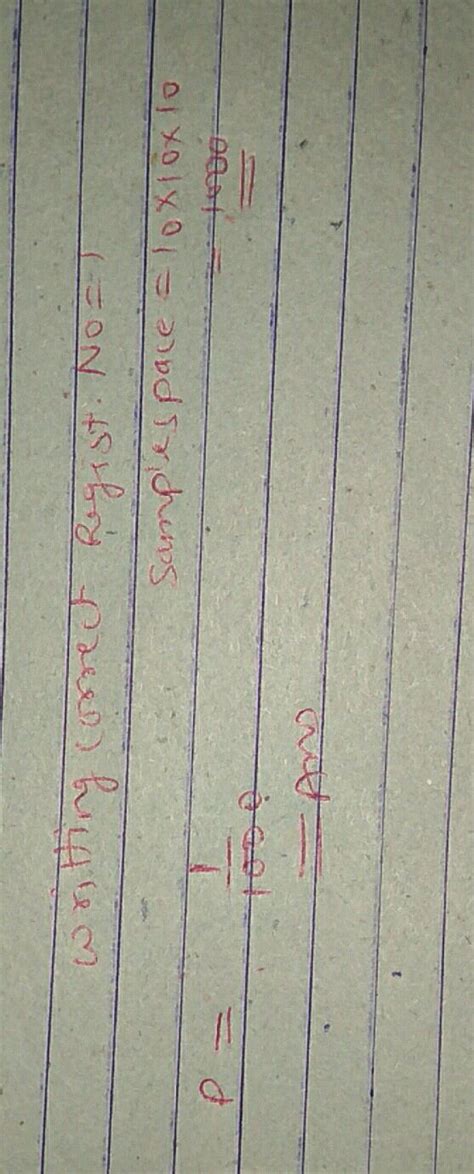 writting correct Regist. No = 1
Sample space = 10 x 10 x 10
= 1000
P = 1/1000
Ans